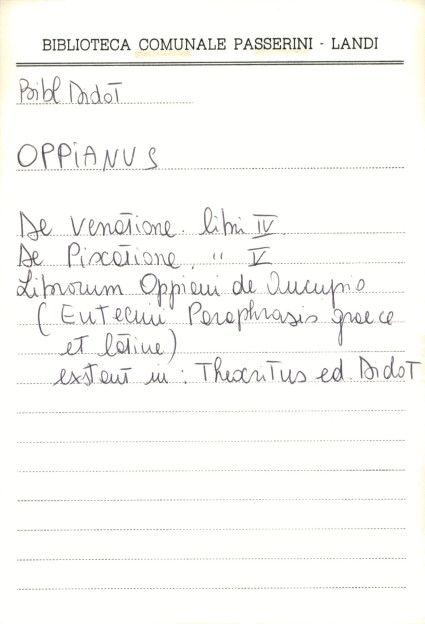 BIBLIOTECA COMUNALE PASSERINI - LANDI
Bibl Didot
OPPIANUS
De Venatione. libri IV
De Piscatione. " V
Librorum Oppiani de Aucupio
(Eutecnii Paraphrasis graece
et latine)
extant in: Theocritus ed. Didot